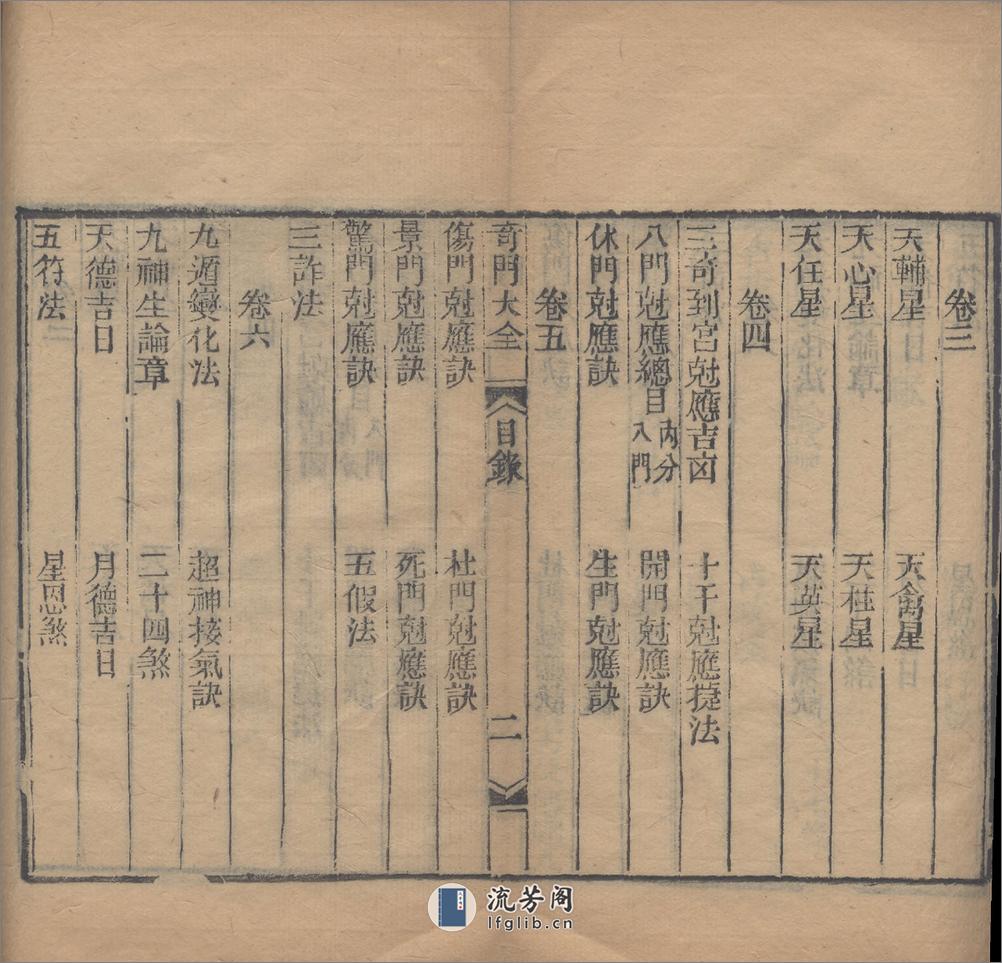 卷三
天輔星　天禽星
天心星　天柱星
天任星　天英星
卷四
三奇到宮尅應吉凶　十干尅應捷法
八門尅應總目内分八門　開門尅應訣
休門尅應訣　生門尅應訣
卷五
奇門大全　目錄　二
傷門尅應訣　杜門尅應訣
景門尅應訣　死門尅應訣
驚門尅應訣　五假法
三詐法
卷六
九遁變化法　超神接氣訣
九神生論章　二十四煞
天德吉日　月德吉日
五符法　星恩煞
流芳阁
lfglib.cn